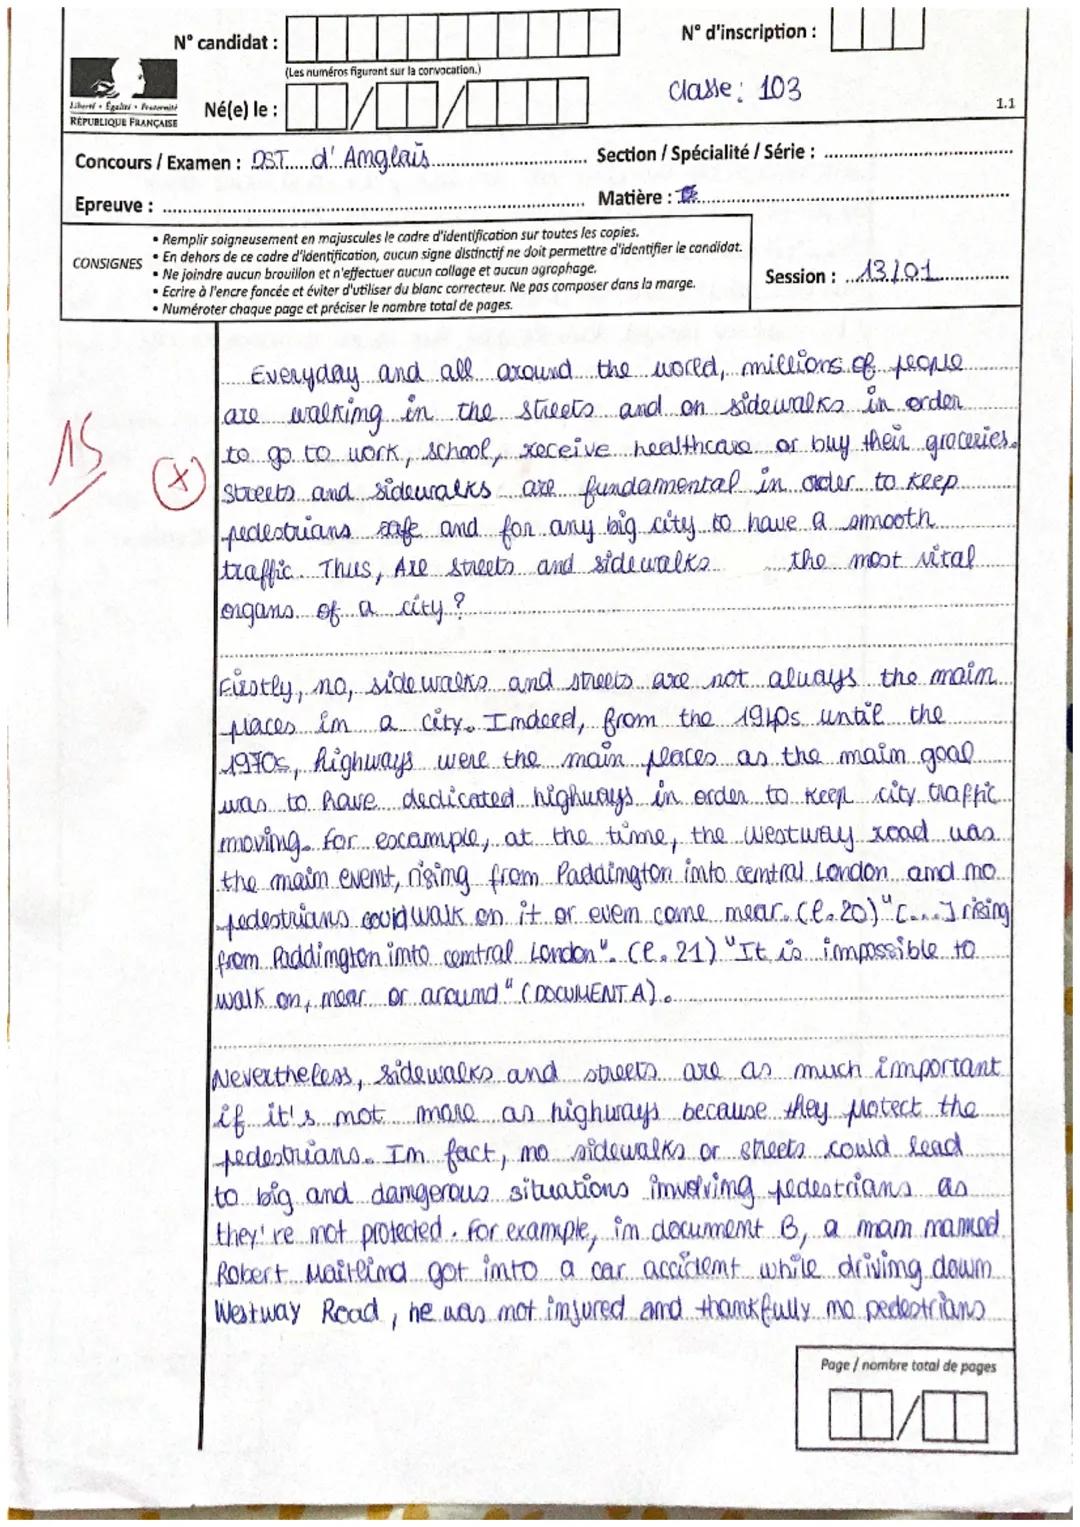 N° candidat :
N° d'inscription :
(Les numéros figurent sur la convocation.)
Classe : 103
Liberté • Égalité • Fraternité
RÉPUBLIQUE FRANÇAISE
Né(e) le :
1.1
Concours / Examen : DST d'Anglais
Section / Spécialité / Série :
Epreuve :
Matière :
CONSIGNES
• Remplir soigneusement en majuscules le cadre d'identification sur toutes les copies.
• En dehors de ce cadre d'identification, aucun signe distinctif ne doit permettre d'identifier le candidat.
• Ne joindre aucun brouillon et n'effectuer aucun collage et aucun agraphage.
• Ecrire à l'encre foncée et éviter d'utiliser du blanc correcteur. Ne pas composer dans la marge.
• Numéroter chaque page et préciser le nombre total de pages.
Session : 13/01
15
Everyday and all around the world, millions of people
are walking in the streets and on sidewalks in order
to go to work, school, receive healthcare or buy their groceries.
Streets and sidewalks are fundamental in order to keep
pedestrians safe and for any big city to have a smooth
traffic. Thus, Are streets and sidewalks the most vital
organs of a city ?
Firstly, no, sidewalks and streets are not always the main
places in a city. Indeed, from the 1940s until the
1970s, highways were the main places as the main goal
was to have dedicated highways in order to keep city traffic
moving. For escample, at the time, the Westway road was
the main event, rising from Paddington into central London and no
pedestrians could walk on it or even come near. (l.20) "[...] rising
from Paddington into central London". (l.21) "It is impossible to
walk on, near or around" (DOCUMENT A).
Nevertheless, sidewalks and streets are as much important
if it's not more as highways because they protect the
pedestrians. In fact, no sidewalks or streets could lead
to big and dangerous situations involving pedestrians as
they're not protected. For example, in document B, a man named
Robert Maitlind got into a car accident while driving down
Westway Road, he was not injured and thankfully no pedestrians
Page / nombre total de pages